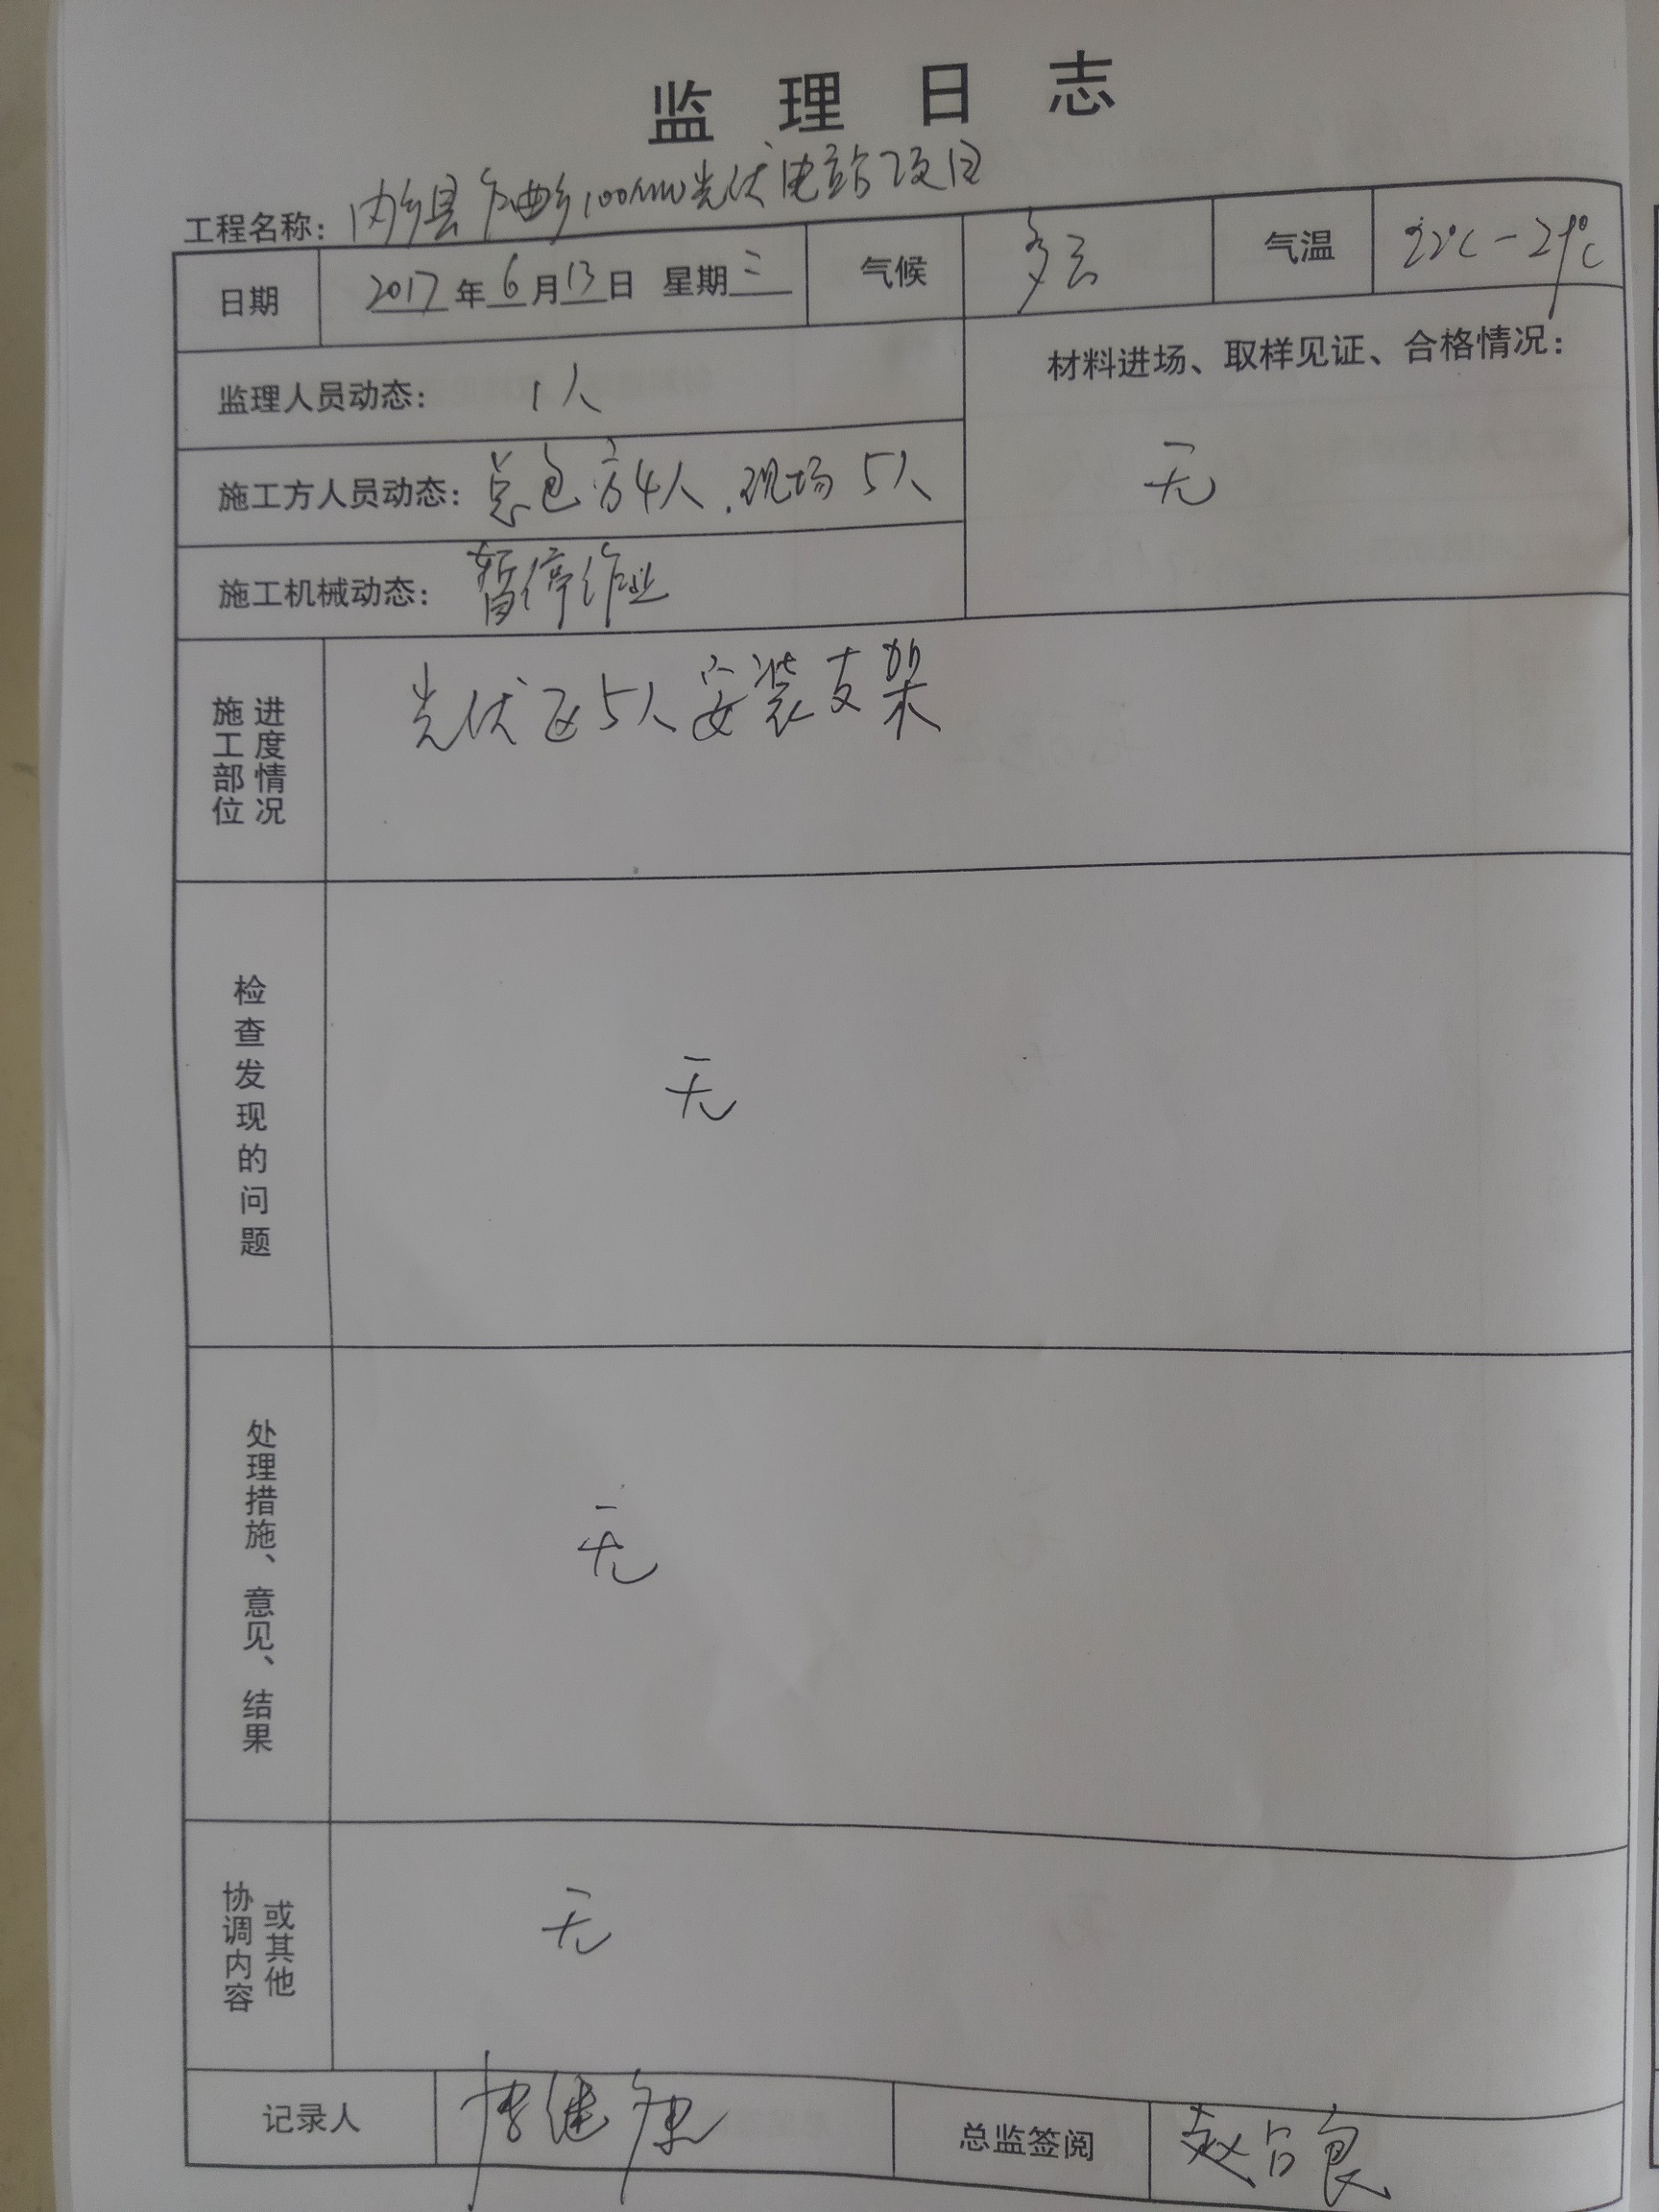 监理日志
工程名称：内乡县乍曲乡100MW光伏电站项目
日期 2017年6月13日 星期三 气候 多云 气温 22℃-29℃
监理人员动态： 1人
材料进场、取样见证、合格情况：
无
施工方人员动态：总包方4人.现场5人
施工机械动态： 暂停作业
施工部位进度情况
光伏区5人安装支架
检查发现的问题
无
处理措施、意见、结果
无
协调内容或其他
无
记录人 李继康 总监签阅 赵占良